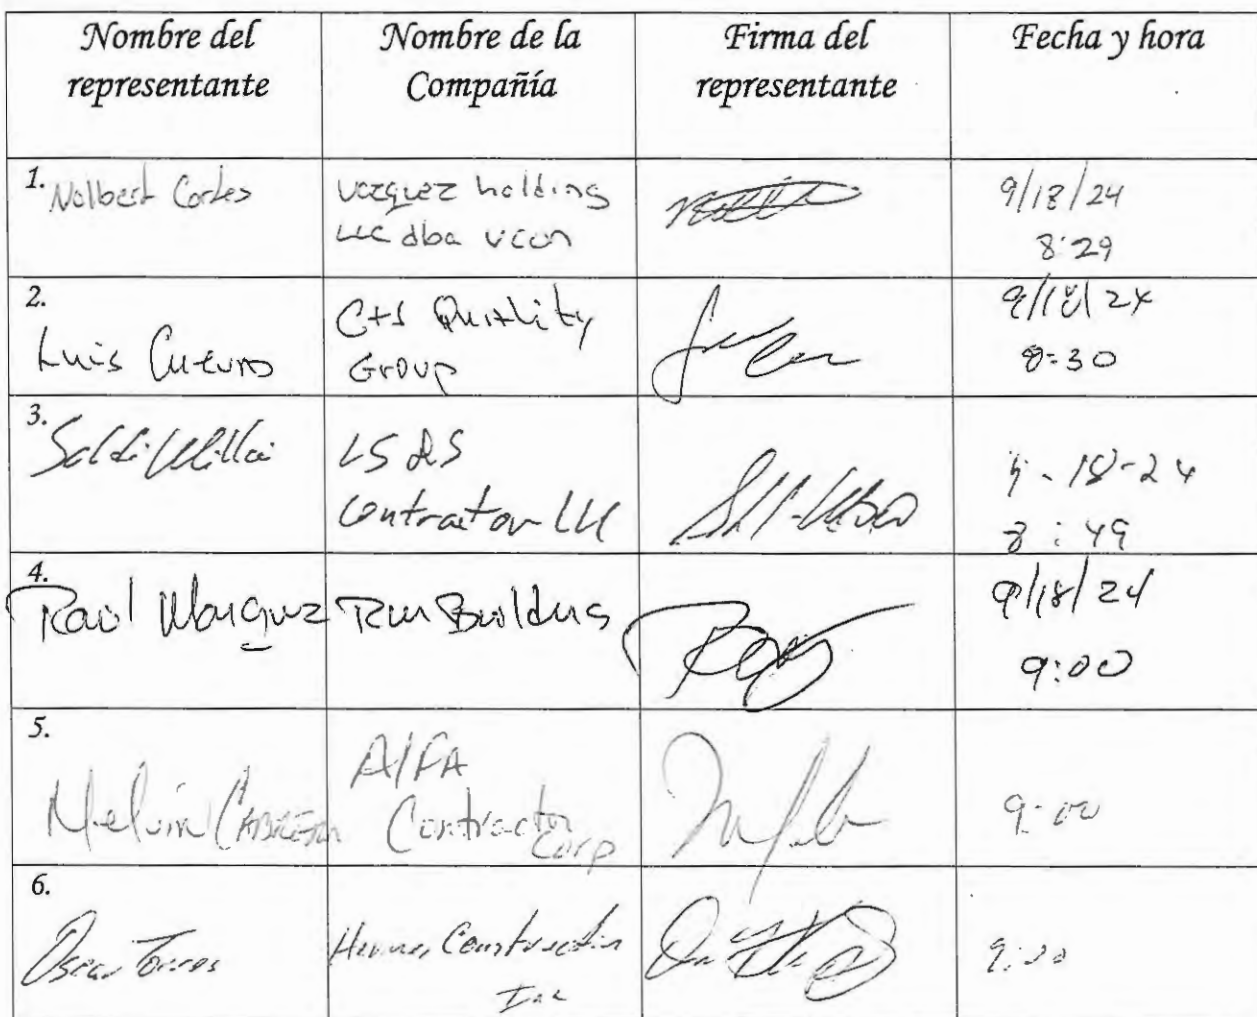 Nombre del representante
Nombre de la Compañía
Firma del representante
Fecha y hora
1. Nolbert Cortes
vazquez holding
LLC dba vcon
9/18/24
8:29
2.
Luis Cuevas
C+S Quality
Group
9/18/24
8:30
3.
LS RS
Contractor LLC
9-18-24
8:49
4.
Raul Marquez
Builders
9/18/24
9:00
5.
Melvin CABRERA
AlFA
Contractor
Corp
9:00
6.
Oscar Torres
Construction
Inc
9:00